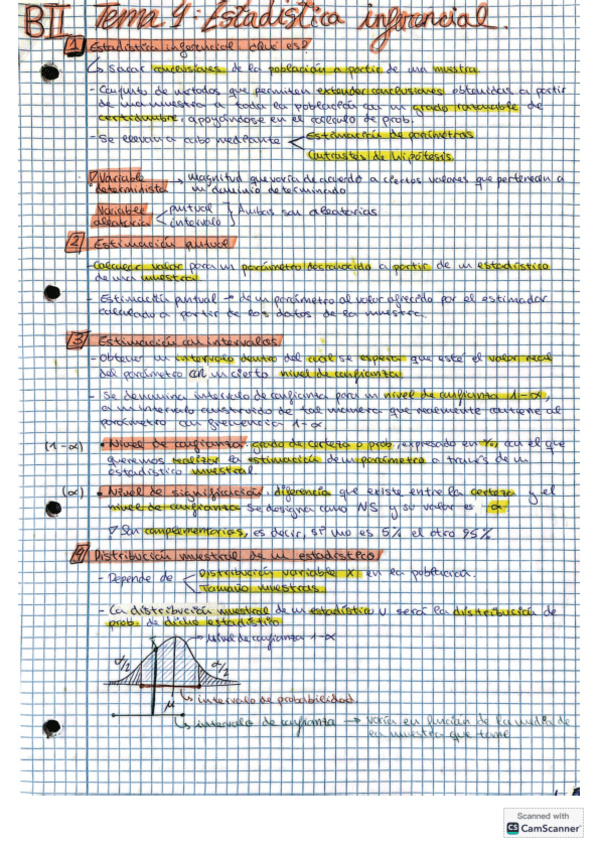 BII Tema 4: Estadística inferencial.
1 Estadística inferencial ¿Qué es?
↳ Sacar conclusiones de la población a partir de una muestra
- Conjunto de métodos que permiten extender conclusiones obtenidas a partir
de una muestra a toda la población con un grado razonable de
certidumbre, apoyándose en el cálculo de prob.
- Se llevan a cabo mediante < Estimación de parámetros
Contrastes de hipótesis
▽ Variable determinista → magnitud que varía de acuerdo a ciertos valores que pertenecen a
un dominio determinado
Variable aleatoria < puntual
intervalo } Ambas son aleatorias
2 Estimación puntual
- Calcular valor para un parámetro desconocido a partir de un estadístico
de una muestra
- Estimación puntual → de un parámetro al valor ofrecido por el estimador
calculado a partir de los datos de la muestra.
3 Estimación con intervalos
- Obtener un intervalo dentro del cual se espera que esté el valor real
del parámetro con un cierto nivel de confianza
- Se denomina intervalo de confianza para un nivel de confianza 1-α,
a un intervalo construido de tal manera que realmente contiene al
parámetro con frecuencia 1-α.
(1-α) • Nivel de confianza: grado de certeza o prob, expresado en %, con el que
queremos realizar la estimación de un parámetro a través de un
estadístico muestral
(α) • Nivel de significación: diferencia que existe entre la certeza y el
nivel de confianza. Se designa como NS y su valor es α
▽ Son complementarios, es decir, si uno es 5% el otro 95%
4 Distribución muestral de un estadístico
- Depende de < Distribución variable X en la población.
Tamaño muestras
- La distribución muestral de un estadístico U será la distribución de
prob. de dicho estadístico
→ Nivel de confianza 1-α
α/2 α/2
μ
↳ intervalo de probabilidad.
↳ intervalo de confianza → varía en función de la media de
la muestra que tome
Scanned with
CS CamScanner